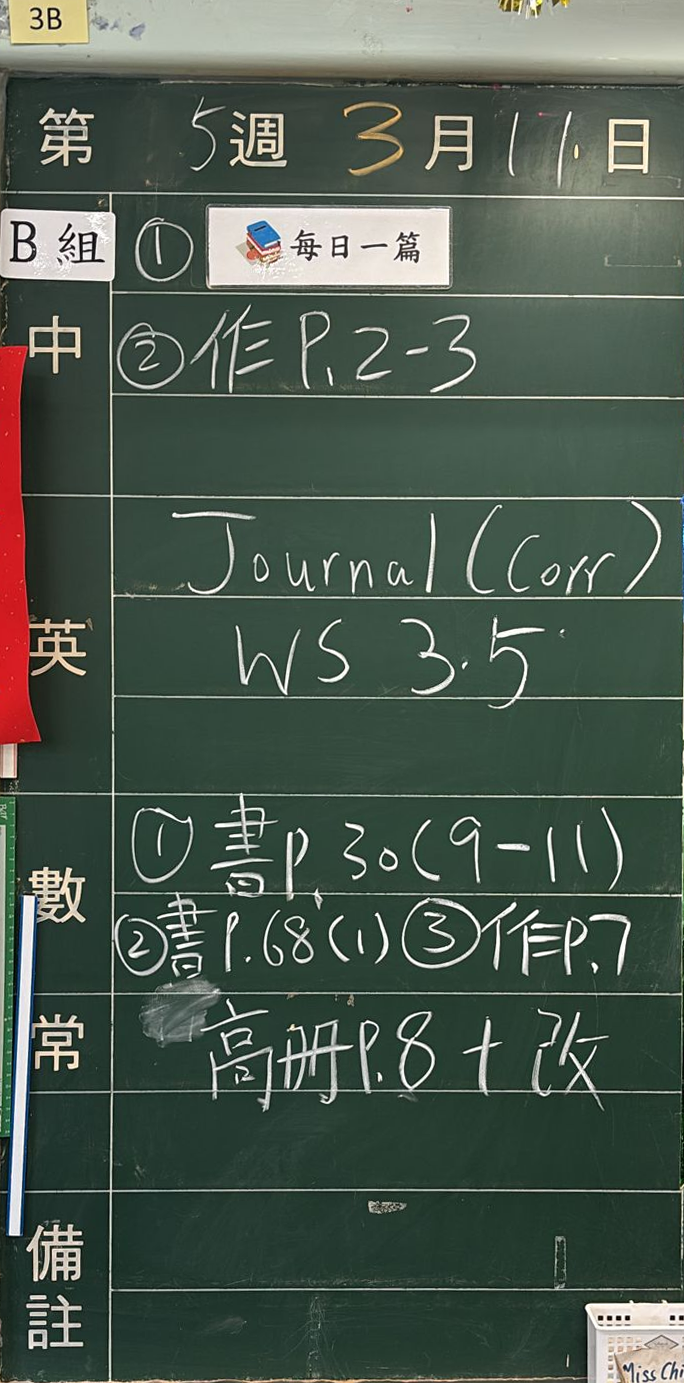 3B
第 5 週 3 月 11 日
B 組 ① 每日一篇
中 ②作 P.2-3
Journal (Corr)
英 WS 3.5
①書P.30(9-11)
數 ②書P.68(1) ③作P.7
常 高册P.8+改
備註
Miss Chi